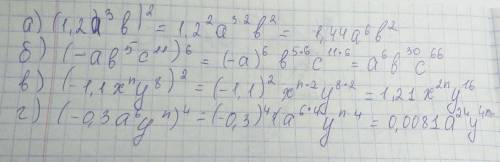 а) (1,2a³b)² = 1,2²a^{3·2}b² = 1,44a⁶b²
б) (-ab⁵c¹¹)⁶ = (-a)⁶b^{5·6}c^{11·6} = a⁶b³⁰c⁶⁶
в) (-1,1xⁿy⁸)² = (-1,1)²x^{n·2}y^{8·2} = 1,21x²ⁿy¹⁶
г) (-0,3a⁶yⁿ)⁴ = (-0,3)⁴(a^{6·4}y^{n·4} = 0,0081a²⁴y⁴ⁿ